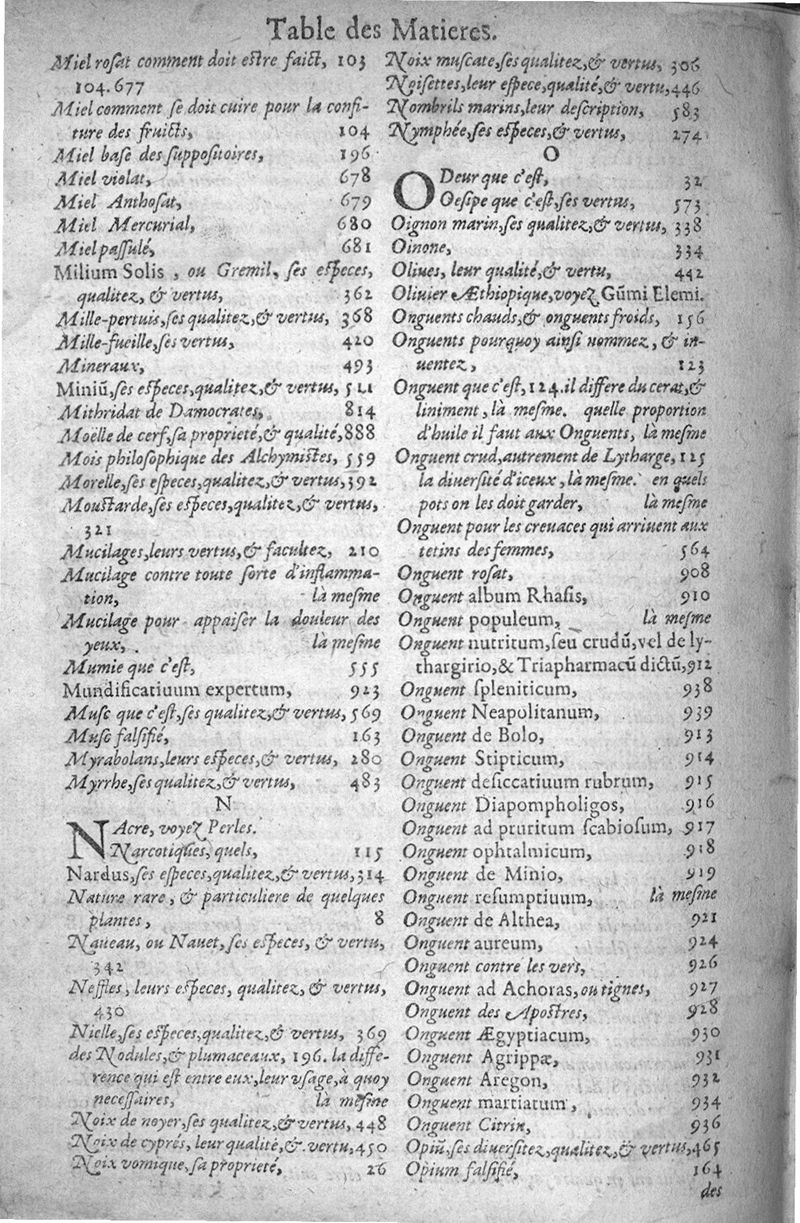 Table des Matieres.
Miel rosat comment doit estre faict, 103
104. 677
Miel comment se doit cuire pour la confi-
ture des fruicts, 104
Miel base des suppositoires, 196
Miel violat, 678
Miel Anthosat, 679
Miel Mercurial, 680
Miel passulé, 681
Milium Solis, ou Gremil, ses especes,
qualitez, & vertus, 362
Mille-pertuis, ses qualitez, & vertus, 368
Mille-fueille, ses vertus, 420
Mineraux, 493
Miniū, ses especes, qualitez, & vertus, 511
Mithridat de Damocrates, 814
Moëlle de cerf, sa proprieté, & qualité, 888
Mois philosophique des Alchymistes, 559
Morelle, ses especes, qualitez, & vertus, 392
Moustarde, ses especes, qualitez, & vertus,
321
Mucilages, leurs vertus, & facultez, 210
Mucilage contre toute sorte d'inflamma-
tion, là mesme
Mucilage pour appaiser la douleur des
yeux, là mesme
Mumie que c'est, 555
Mundificatiuum expertum, 923
Musc que c'est, ses qualitez, & vertus, 569
Musc falsifié, 163
Myrabolans, leurs especes, & vertus, 280
Myrrhe, ses qualitez, & vertus, 483
N
NAcre, voyez Perles.
Narcotiques, quels, 115
Nardus, ses especes, qualitez, & vertus, 314
Nature rare, & particuliere de quelques
plantes, 8
Naueau, ou Nauet, ses especes, & vertu,
342
Neffles, leurs especes, qualitez, & vertus,
430
Nielle, ses especes, qualitez, & vertus, 369
des Nodules, & plumaceaux, 196. la diffe-
rence qui est entre eux, leur vsage, à quoy
necessaires, là mesme
Noix de noyer, ses qualitez, & vertus, 448
Noix de cyprés, leur qualité, & vertu, 450
Noix vomique, sa proprieté, 26
Noix muscate, ses qualitez, & vertus, 306
Noisettes, leur espece, qualité, & vertu, 446
Nombrils marins, leur description, 583
Nymphée, ses especes, & vertus, 274
O
ODeur que c'est, 32
Oesipe que c'est, ses vertus, 573
Oignon marin, ses qualitez, & vertus, 338
Oinone, 334
Oliues, leur qualité, & vertu, 442
Oliuier Æthiopique, voyez Gūmi Elemi.
Onguents chauds, & onguents froids, 156
Onguents pourquoy ainsi nommez, & in-
uentez, 123
Onguent que c'est, 124. il differe du cerat, &
liniment, là mesme. quelle proportion
d'huile il faut aux Onguents, là mesme
Onguent crud, autrement de Lytharge, 125
la diuersité d'iceux, là mesme. en quels
pots on les doit garder, là mesme
Onguent pour les creuaces qui arriuent aux
tetins des femmes, 564
Onguent rosat, 908
Onguent album Rhasis, 910
Onguent populeum, là mesme
Onguent nutritum, seu crudū, vel de ly-
thargirio, & Triapharmacū dictū, 912
Onguent spleniticum, 938
Onguent Neapolitanum, 939
Onguent de Bolo, 913
Onguent Stipticum, 914
Onguent desiccatiuum rubrum, 915
Onguent Diapompholigos, 916
Onguent ad pruritum scabiosum, 917
Onguent ophtalmicum, 918
Onguent de Minio, 919
Onguent resumptiuum, là mesme
Onguent de Althea, 921
Onguent aureum, 924
Onguent contre les vers, 926
Onguent ad Achoras, ou tignes, 927
Onguent des Apostres, 928
Onguent Ægyptiacum, 930
Onguent Agrippæ, 931
Onguent Aregon, 932
Onguent martiatum, 934
Onguent Citrin, 936
Opiū, ses diuersitez, qualitez, & vertus, 465
Opium falsifié, 164
des